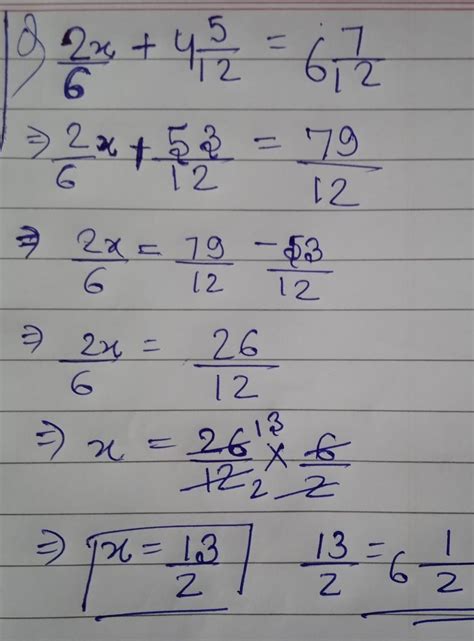 d) 2x/6 + 4 5/12 = 6 7/12
⇒ 2x/6 + 53/12 = 79/12
⇒ 2x/6 = 79/12 - 53/12
⇒ 2x/6 = 26/12
⇒ x = 26 13/12 2 × 6/2
⇒ x = 13/2 13/2 = 6 1/2